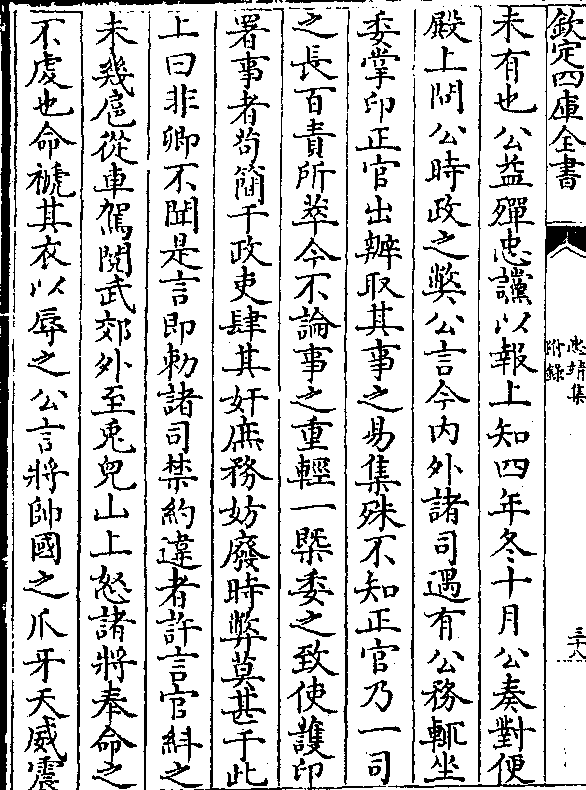 欽定四庫全書
忠靖集
附錄
三十八
未有也公益殫忠讜以報上知四年冬十月公奏對便
殿上問公時政之弊公言今内外諸司遇有公務輒坐
委掌印正官出辦取其事之易集殊不知正官乃一司
之長百責所萃今不論事之重輕一槩委之致使護印
署事者苟簡干政吏肆其奸庶務妨廢時弊莫甚于此
上曰非卿不聞是言即勅諸司禁約違者許言官糾之
未幾扈從車駕閱武郊外至兎兒山上怒諸將奉命之
不虔也命褫其衣以辱之公言將帥國之爪牙天威震